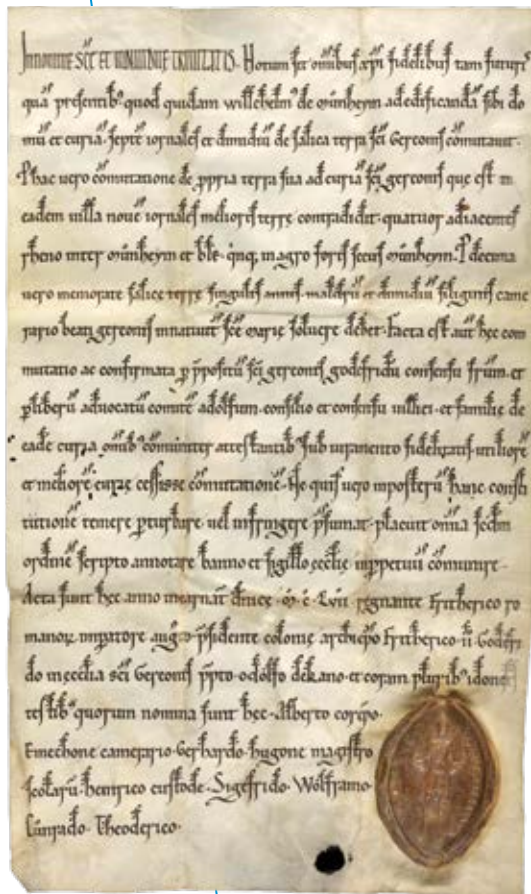 In nomine scē et individue trinitatis. Notum sit omībus xp̄i fidelibus tam futuris
quā presentib; quod quidam willehelm; de munheym ad edificandā sibi do
mū et curiā. septē iornales et dimidiū de salica terra sc̄i Gereonis cōmutavit.
P hac uero cōmutatione de ꝓpria terra sua ad curiā sc̄i gereonis que est in
eadem uilla nouē iornales melioris terre contradidit. quatuor adiacentes
rheno inter munheym et ble. quinq; in agro foris secus munheym. P decima
uero memorate salice terre singulis annis. maldrū et dimidiū siliginis came
rario beati gereonis in natiuit scē marie soluere debet. Facta est aut̄ hec com
mutatio ac confirmata ꝑ p̄positū sc̄i gereonis godefridū consensu fr̄um. et
ꝑ liberū aduocatū comitē adolfum. consilio et consensu uillici. et familie de
eadē curia omīb; cōmuniter attestantib; sub iuramento fidelitatis. utiliorē
et meliorē curię cessisse cōmutationē. Ne quis uero in posterū hanc consti
tutionē temere ꝑturbare. uel infringere p̄sumat. placuit omīa secdm
ordinē scripto annotare banno et sigillo ęcclię in ꝑpetuū cōmunire.
Acta sunt hec anno incarnat̄ dn̄icę. m̄. c̄. Lvii. regnante Fritherico ro
manoꝝ imperatore aug; p̄sidente colonię archiep̄o Fritherico. ii. Godefri
do in ęcclia sc̄i Gereonis p̄p̄to. odolfo dekano. et coram plurib; idoneis
testib; quorum nomina sunt hec. Alberto corep̄o.
Emechone camerario. Gerhardo. hugone magistro
scolarū. henrico custode. Sigefrido. Wolframo.
Cunrado. Theoderico.